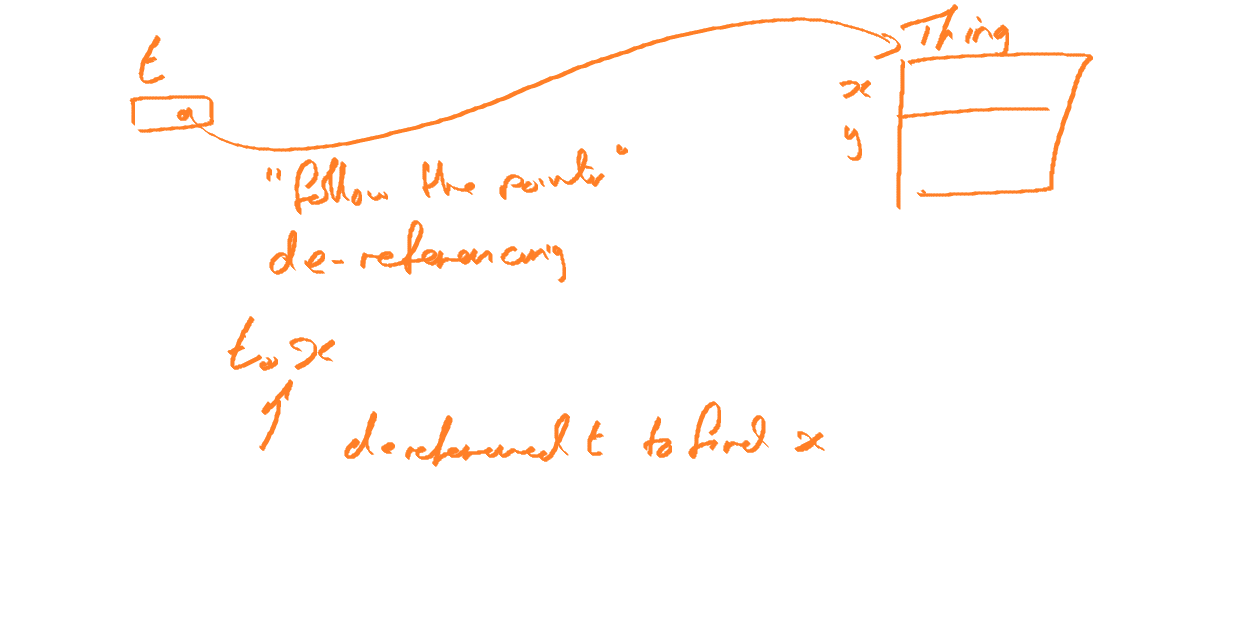 t
Thing
x
y
"follow the pointer"
de-referencing
t.x
dereferenced t to find x